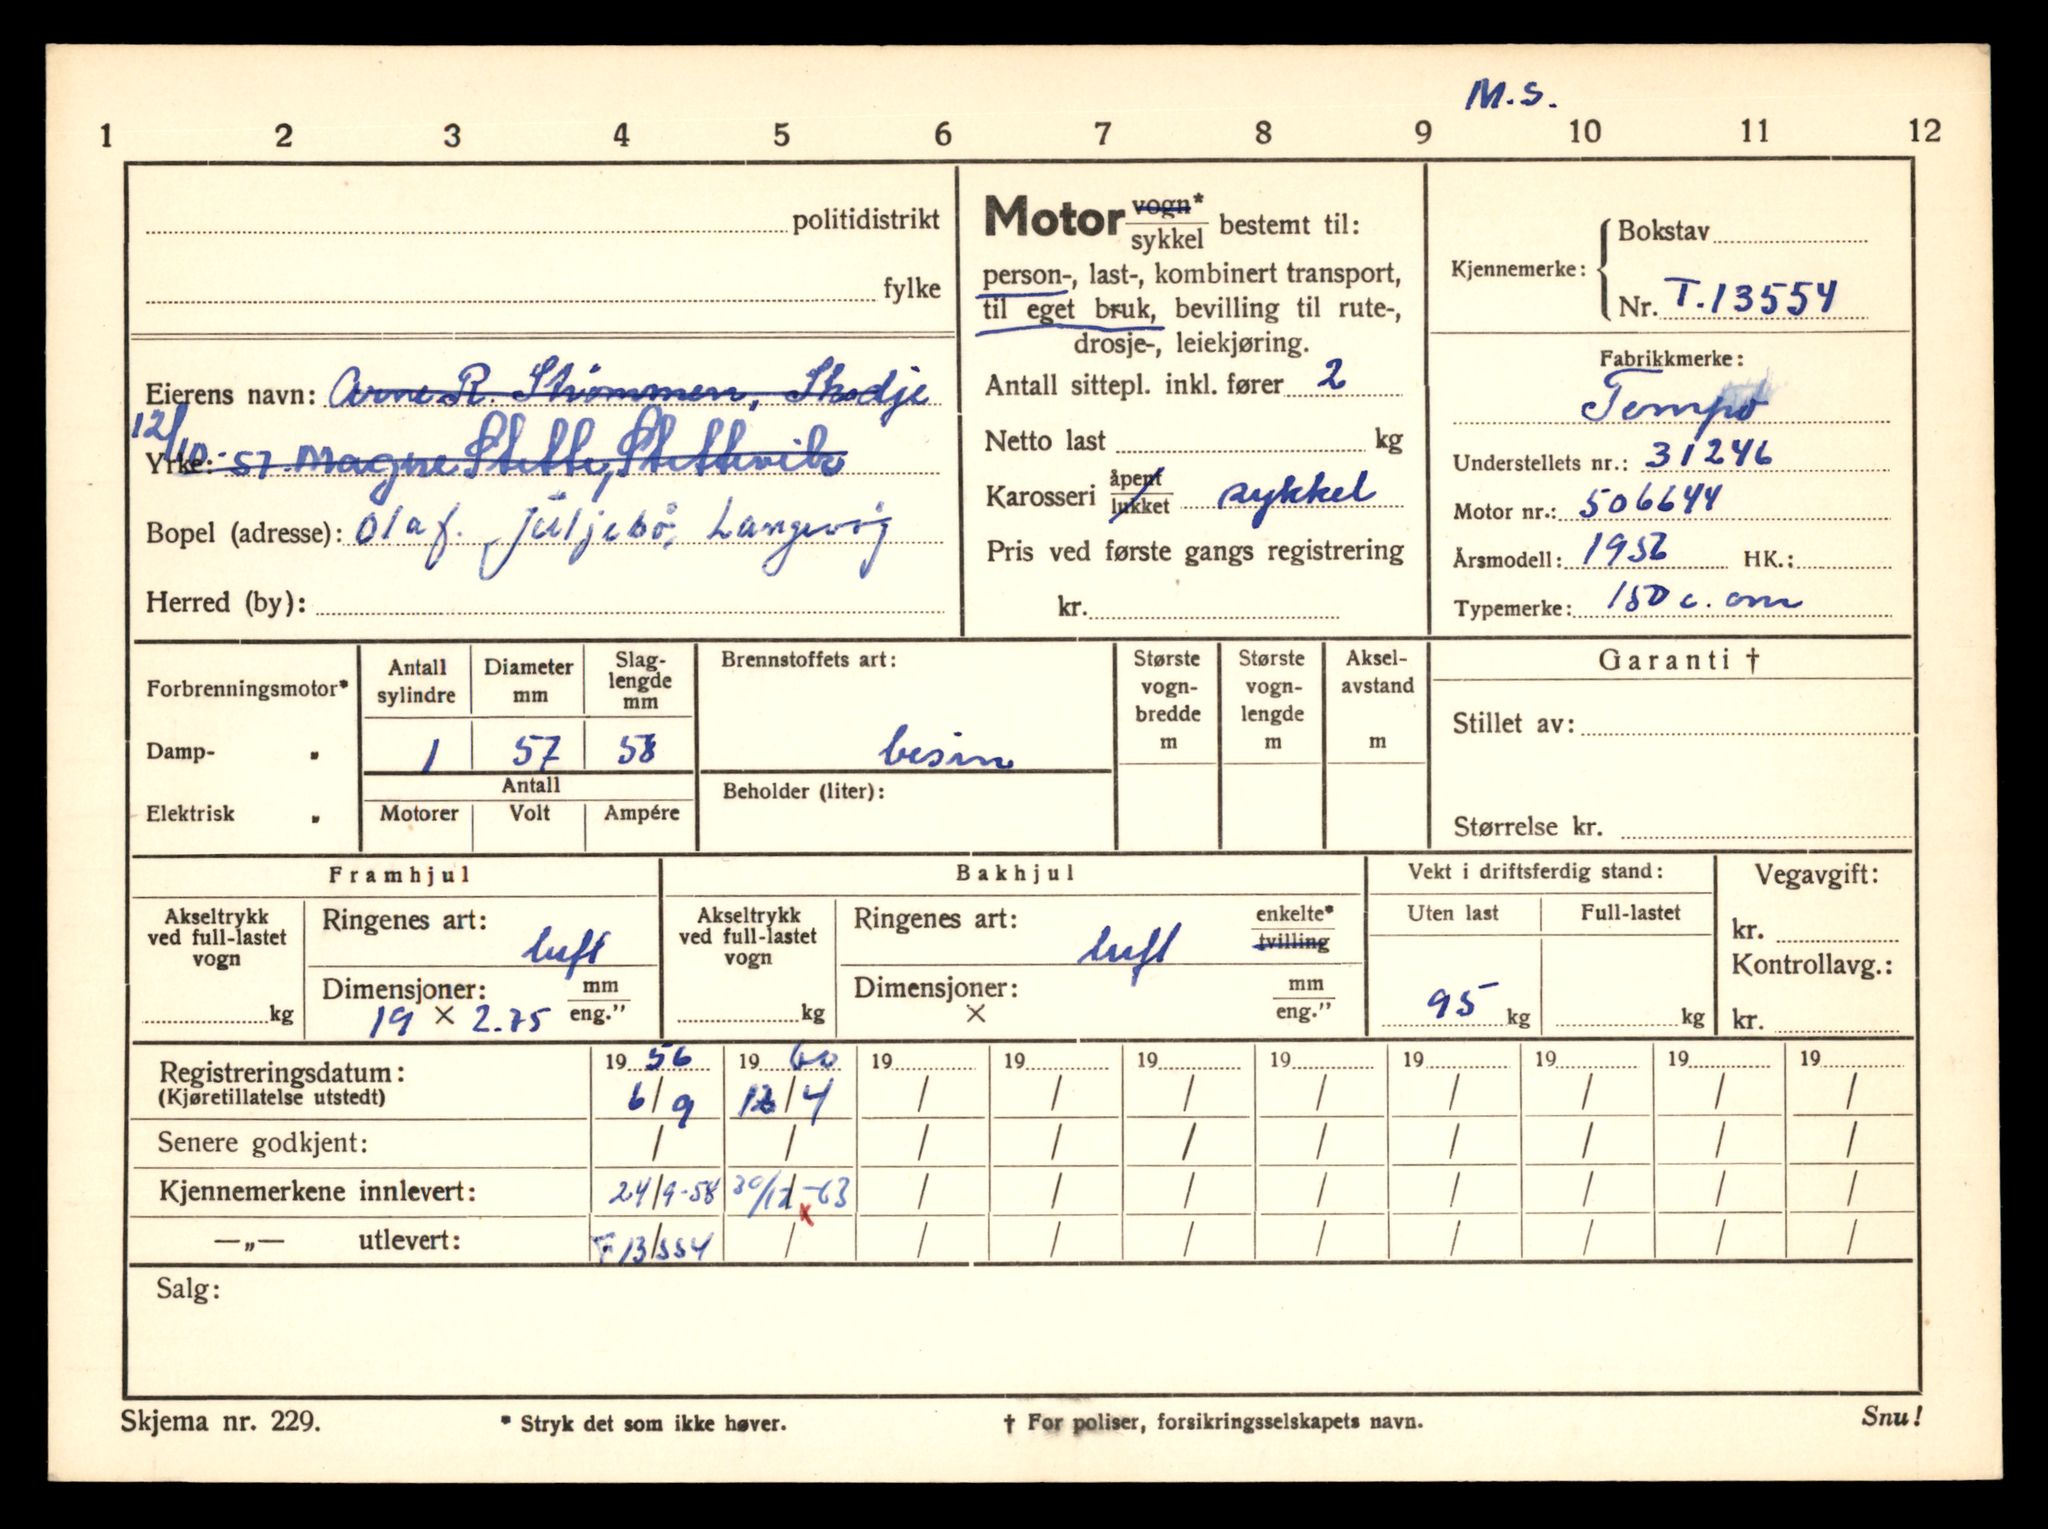 M.S.
1 2 3 4 5 6 7 8 9 10 11 12
politidistrikt
fylke
Eierens navn: Arne R. Strømmen, Skodje
12/10-57 Magne Stette, Stettevik
Yrke:
Bopel (adresse): Olaf. Juljebø, Langevåg
Herred (by):
Motor vogn*/sykkel bestemt til:
person-, last-, kombinert transport,
til eget bruk, bevilling til rute-,
drosje-, leiekjøring.
Antall sittepl. inkl. fører 2
Netto last kg
Karosseri åpent/lukket sykkel
Pris ved første gangs registrering
kr.
Kjennemerke: Bokstav
Nr. T.13554
Fabrikkmerke:
Tempo
Understellets nr.: 31246
Motor nr.: 506644
Årsmodell: 1956 HK.:
Typemerke: 150 c. cm
Forbrenningsmotor*
Damp- "
Elektrisk "
Antall sylindre
1
Diameter mm
57
Slag-lengde mm
58
Antall
Motorer Volt Ampére
Brennstoffets art:
besin
Beholder (liter):
Største vogn-bredde m
Største vogn-lengde m
Aksel-avstand m
Garanti †
Stillet av:
Størrelse kr.
Framhjul
Akseltrykk ved full-lastet vogn
kg
Ringenes art:
luft
Dimensjoner: mm/eng."
19 × 2.75
Bakhjul
Akseltrykk ved full-lastet vogn
kg
Ringenes art: enkelte*/tvilling
luft
Dimensjoner: mm/eng."
×
Vekt i driftsferdig stand:
Uten last Full-lastet
95 kg kg
Vegavgift:
kr.
Kontrollavg.:
kr.
Registreringsdatum: 19 56 19 60 19 19 19 19 19 19 19 19
(Kjøretillatelse utstedt) 6/9 /4 / / / / / / / /
Senere godkjent: / / / / / / / / / /
Kjennemerkene innlevert: 24/9-58 30/12-63 x / / / / / / / /
—„— utlevert: T 13/554 / / / / / / / / /
Salg:
Skjema nr. 229. * Stryk det som ikke høver. † For poliser, forsikringsselskapets navn. Snu!